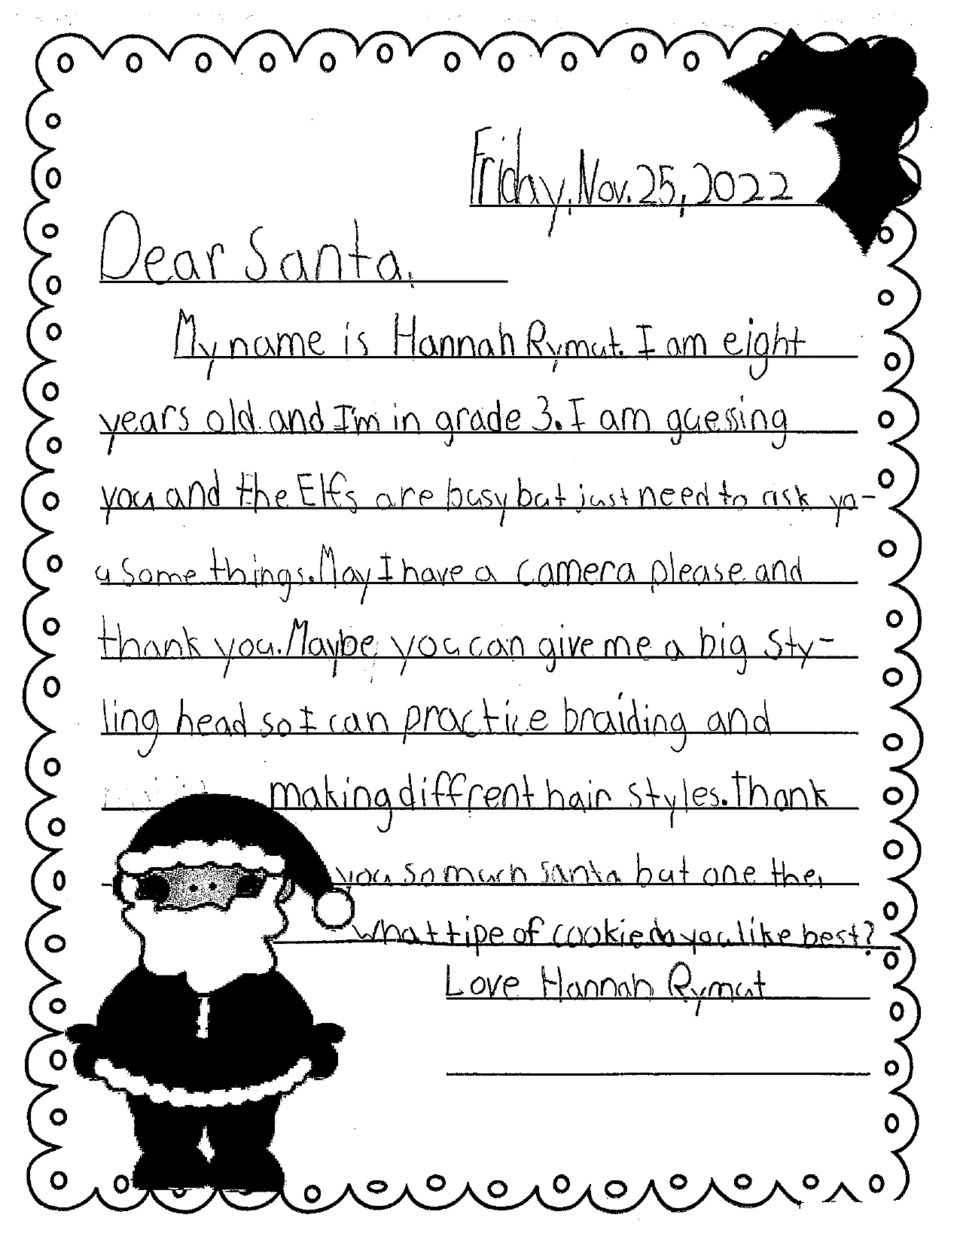 Friday, Nov. 25, 2022
Dear Santa,
My name is Hannah Rymut. I am eight
years old and I'm in grade 3. I am guessing
you and the Elfs are busy but just need to ask yo-
u some things. May I have a camera please and
thank you. Maybe you can give me a big sty-
ling head so I can practice braiding and
making diffrent hair styles. Thank
you so much santa but one the,
what tipe of cookie do you like best?
Love Hannah Rymut